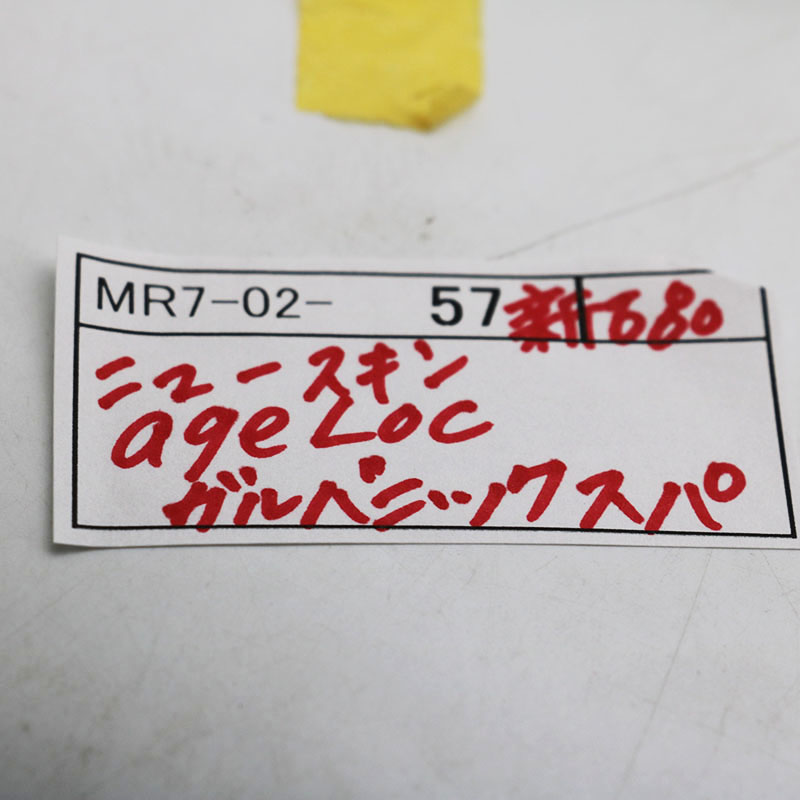 MR7-02- 57 新680
ニュースキン
ageLoc
ガルペニックスパ